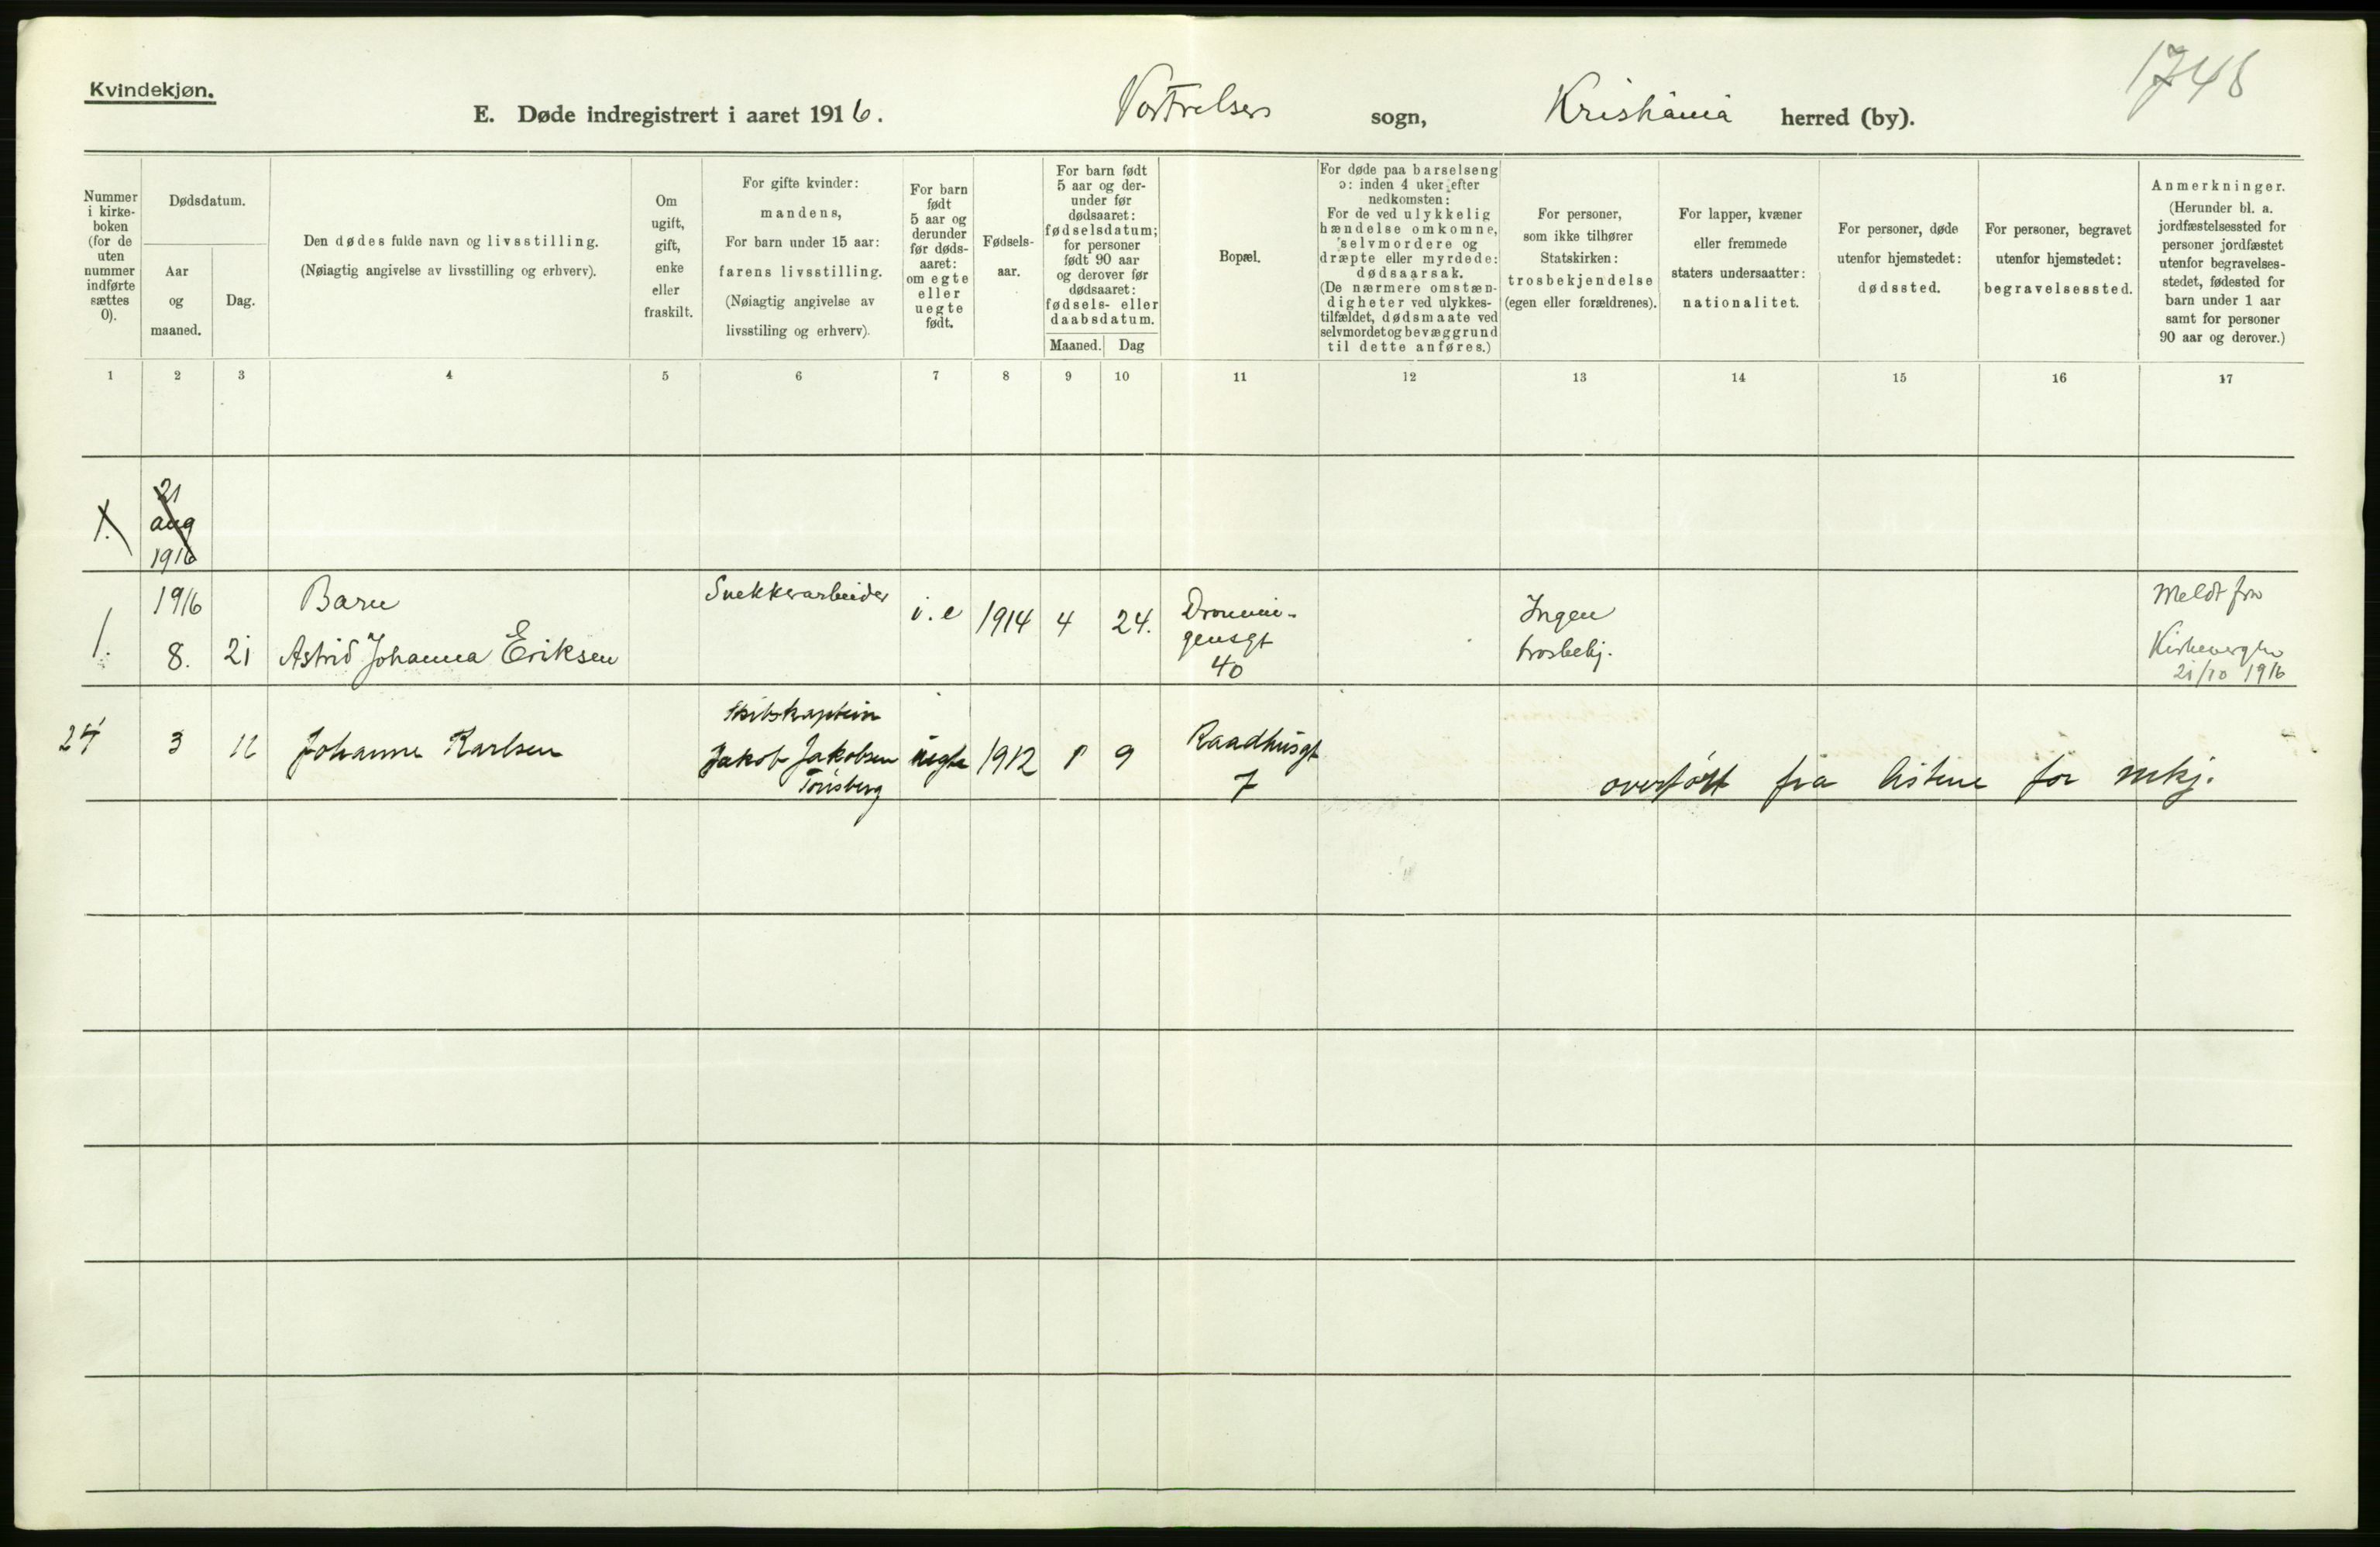 Kvindekjøn.
1748
E. Døde indregistrert i aaret 1916. Vor Frelsers sogn, Kristiania herred (by).
Nummer i kirke- boken (for de uten nummer indførte sættes 0).
Dødsdatum.
Aar og maaned.
Dag.
Den dødes fulde navn og livsstilling.
(Nøiagtig angivelse av livsstilling og erhverv).
Om ugift, gift, enke eller fraskilt.
For gifte kvinder:
mandens,
For barn under 15 aar:
farens livsstilling.
(Nøiagtig angivelse av
livsstiling og erhverv).
For barn født 5 aar og derunder før døds- aaret: om egte eller uegte født.
Fødsels- aar.
For barn født
5 aar og der-
under før
dødsaaret:
fødselsdatum;
for personer
født 90 aar
og derover før
dødsaaret:
fødsels- eller
daabsdatum.
Maaned. Dag
Bopæl.
For døde paa barselseng
ɔ: inden 4 uker efter
nedkomsten:
For de ved ulykkelig
hændelse omkomne,
selvmordere og
dræpte eller myrdede:
dødsaarsak.
(De nærmere omstæn-
digheter ved ulykkes-
tilfældet, dødsmaate ved
selvmordet og bevæggrund
til dette anføres.)
For personer,
som ikke tilhører
Statskirken:
trosbekjendelse
(egen eller forældrenes).
For lapper, kvæner
eller fremmede
staters undersaatter:
nationalitet.
For personer, døde
utenfor hjemstedet:
dødssted.
For personer, begravet
utenfor hjemstedet:
begravelsessted.
Anmerkninger.
(Herunder bl. a.
jordfæstelsessted for
personer jordfæstet
utenfor begravelses-
stedet, fødested for
barn under 1 aar
samt for personer
90 aar og derover.)
1 2 3 4 5 6 7 8 9 10 11 12 13 14 15 16 17
1.
21
aug
1916
1.
1916
8. 21
Barn
Astrid Johanna Eriksen
Snekkerarbeider
i.e 1914 4 24.
Dronnin-
gensgt
40
Ingen
trosbekj.
Meldt fra
Kirkevergen
21/10 1916
24 3 12 Johanne Karlsen
Skibskaptein
Jakob Jakobsen
Tønsberg
uegte 1912 8 9
Raadhusgt
7
overført fra listene for mkj.